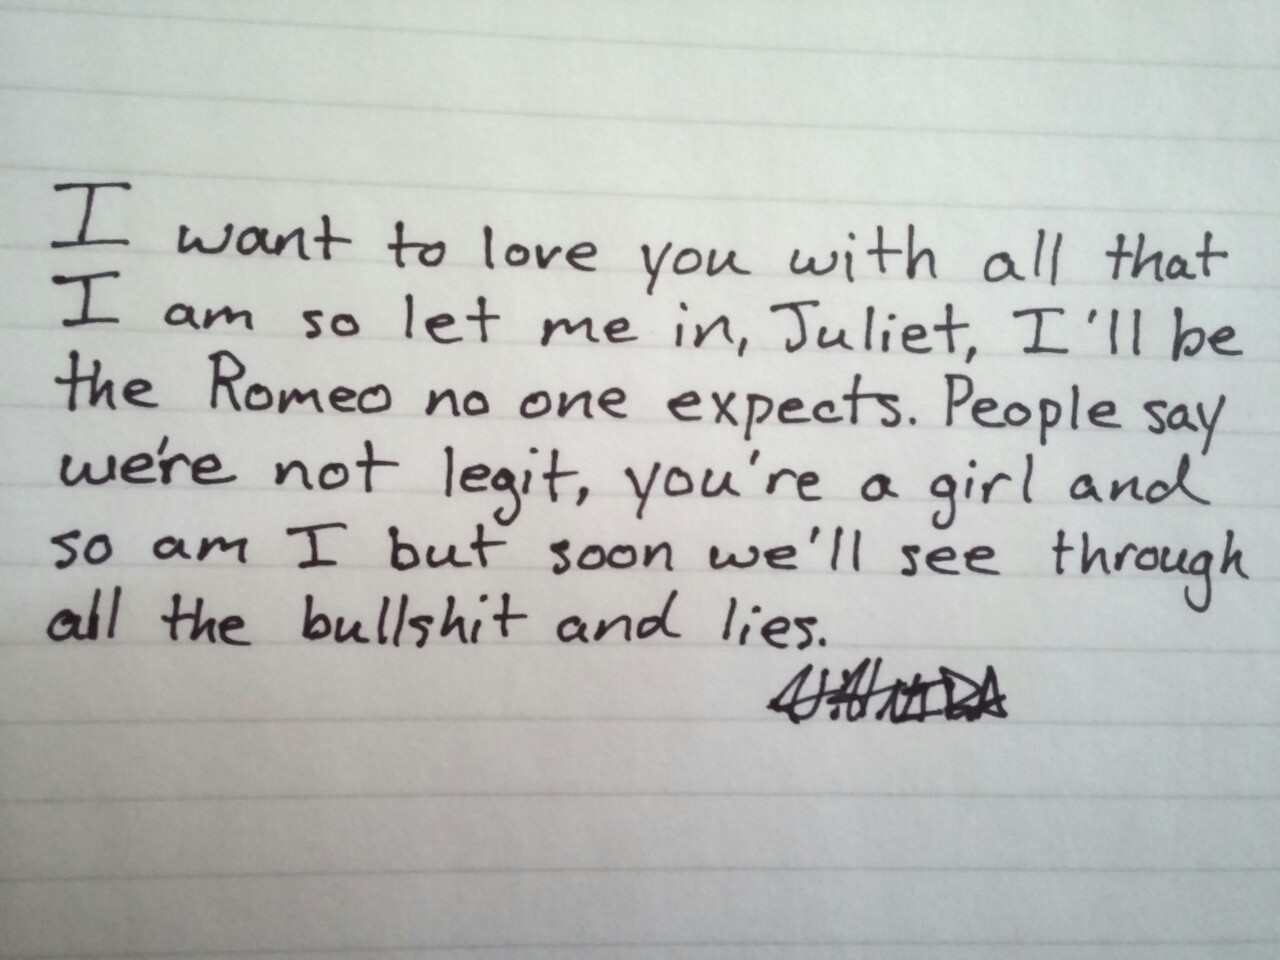 I want to love you with all that
I am so let me in, Juliet, I'll be
the Romeo no one expects. People say
we're not legit, you're a girl and
so am I but soon we'll see through
all the bullshit and lies.